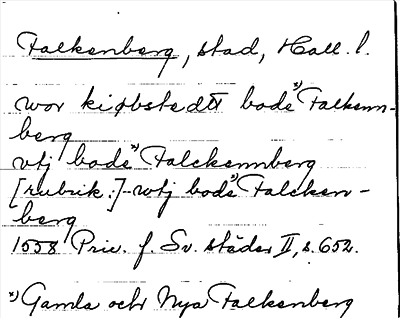 Falkenberg, stad, Hall. l.
wor kiøbstedtt bode *) Falkenn-
berg
vtj bode *) Falckennberg
[rubrik:] wtj bode *) Falcken-
berg
1558 Priv. f. Sv. städer II, s. 652.
*) Gamla och Nya Falkenberg